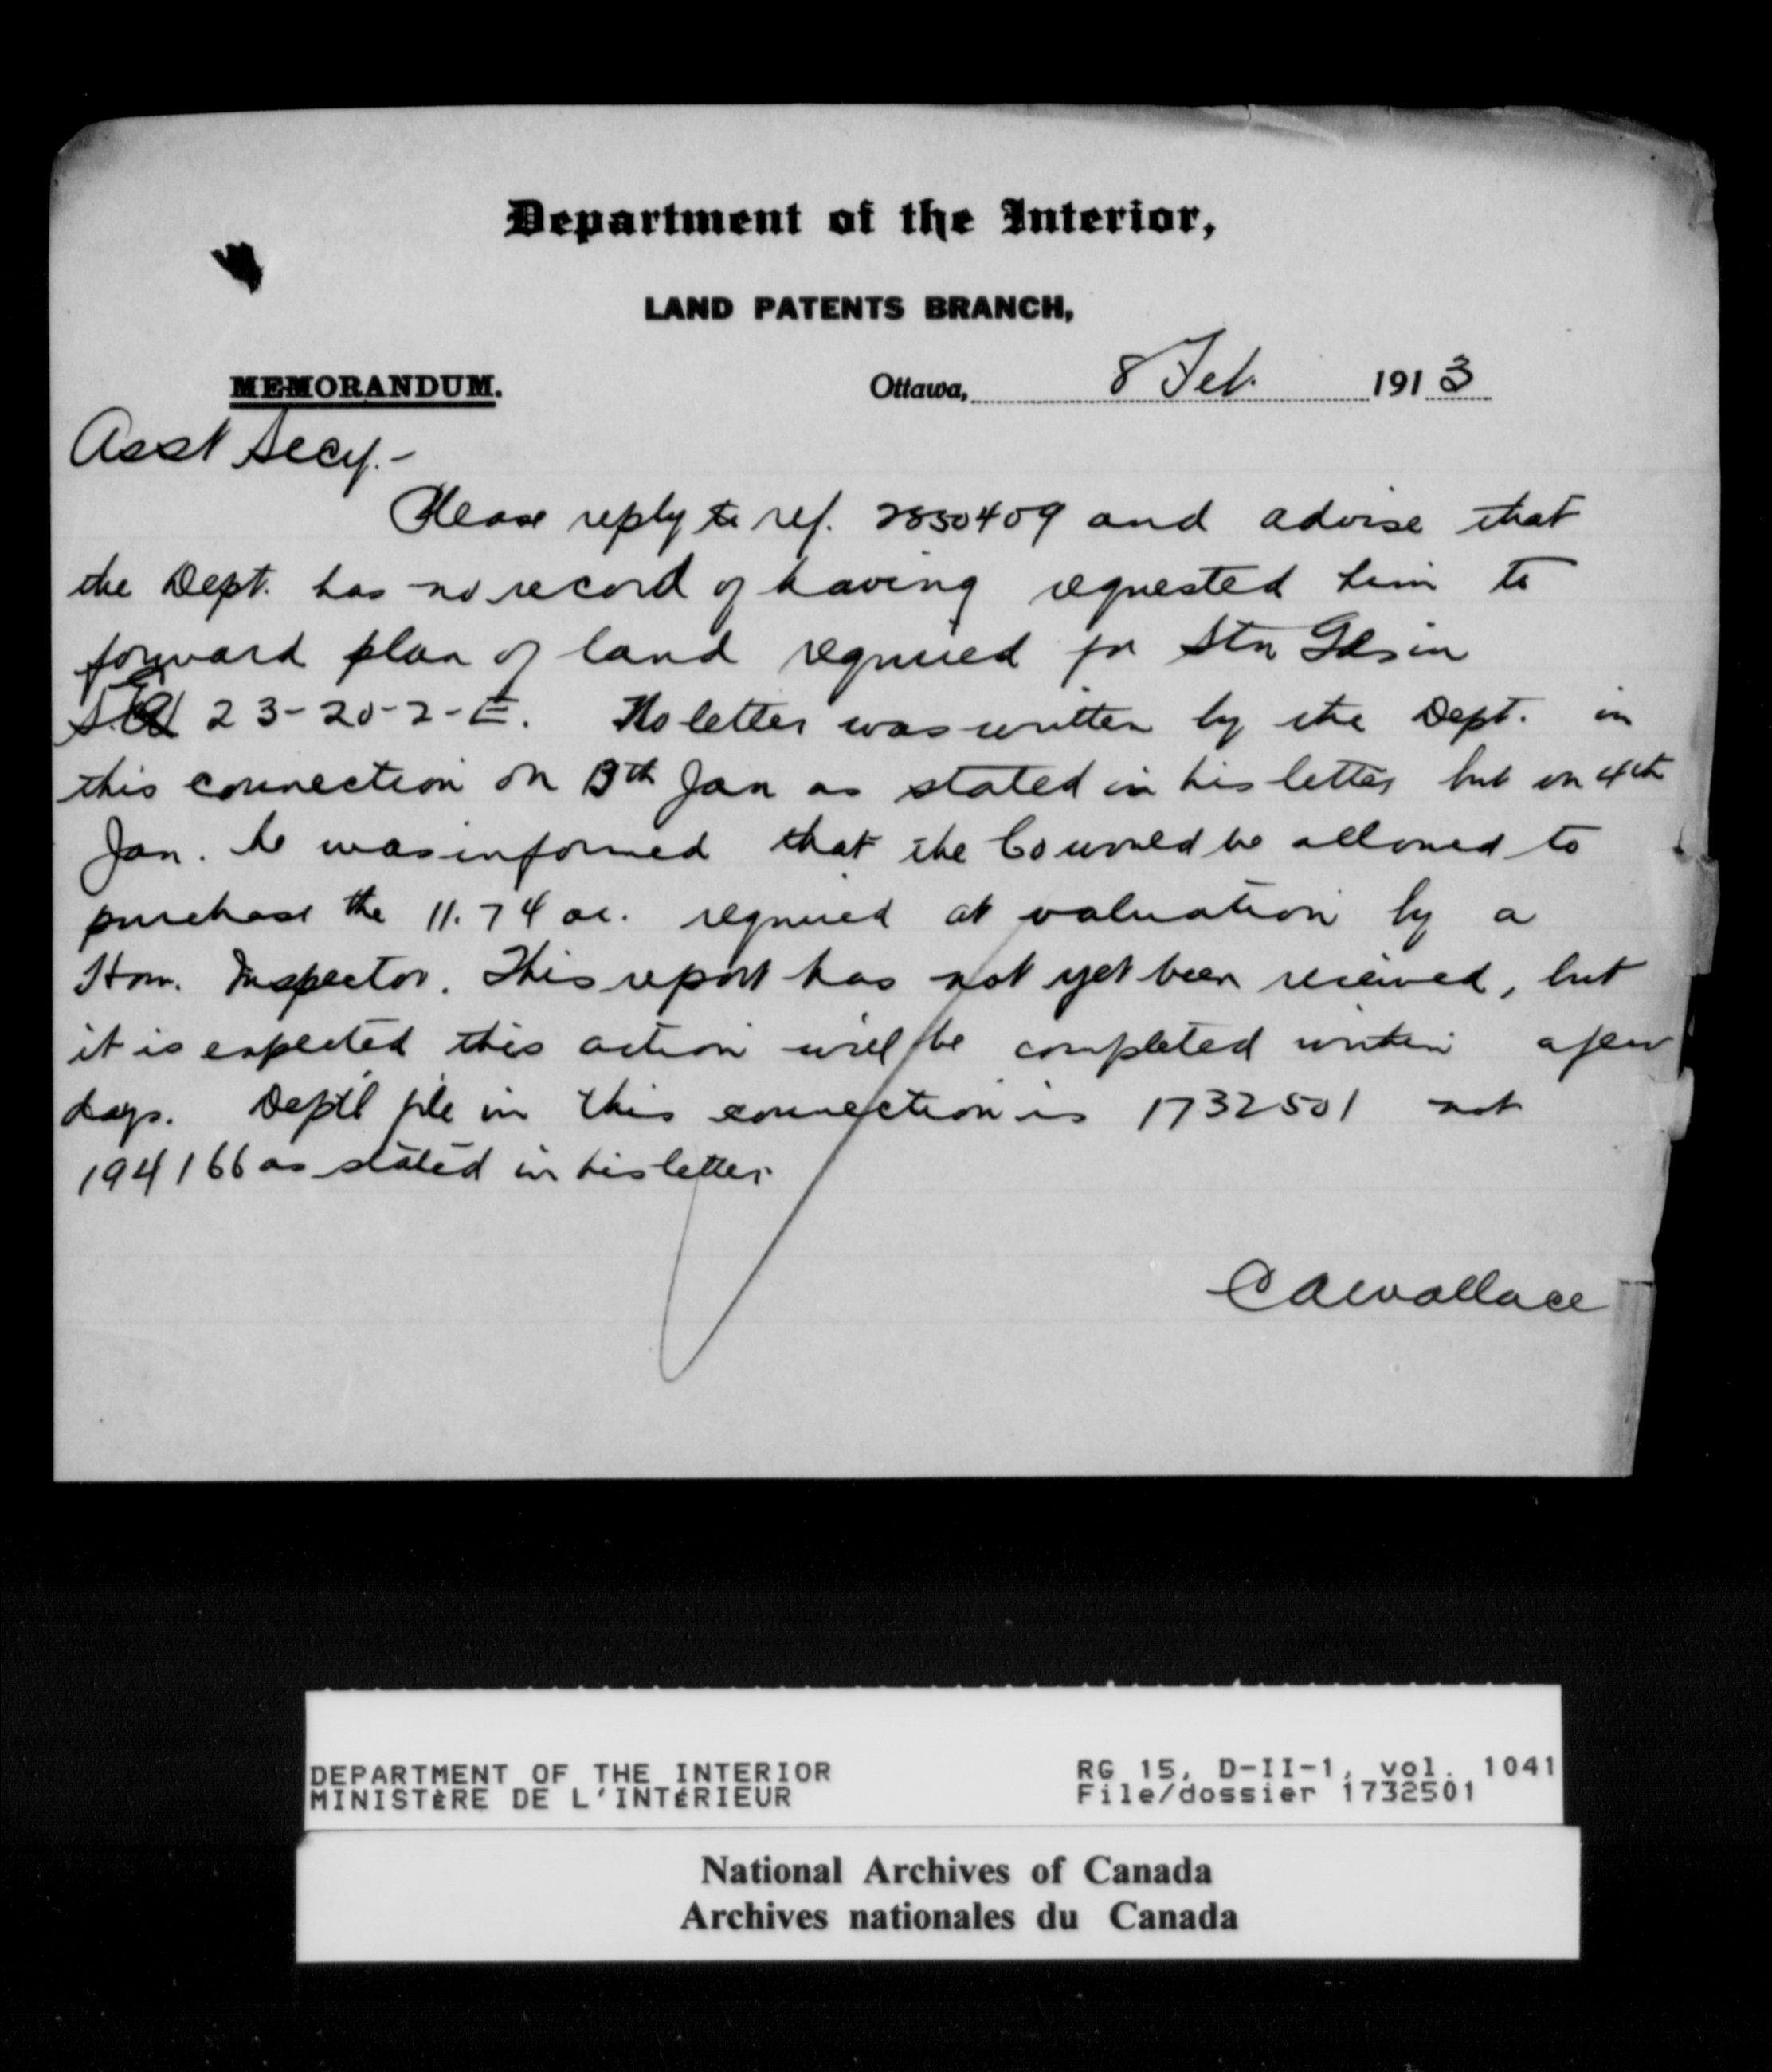 Department of the Interior,
LAND PATENTS BRANCH,
MEMORANDUM.
Ottawa, 8 Feb. 1913
Asst Secy.-
Please reply to ref. 2850409 and advise that
the Dept. has no record of having requested him to
forward plan of land required for Stn Gds in
23-20-2-E. No letter was written by the Dept. in
this connection on 13th Jan as stated in his letter but on 4th
Jan. he was informed that the Co would be allowed to
purchase the 11.74 ac. required at valuation by a
Hom. Inspector. This report has not yet been received, but
it is expected this action will be completed within a few
days. Deptl file in this connection is 1732501 not
194166 as stated in his letter.
CAWallace
DEPARTMENT OF THE INTERIOR
MINISTÈRE DE L'INTÉRIEUR
RG 15, D-II-1, vol. 1041
File/dossier 1732501
National Archives of Canada
Archives nationales du Canada